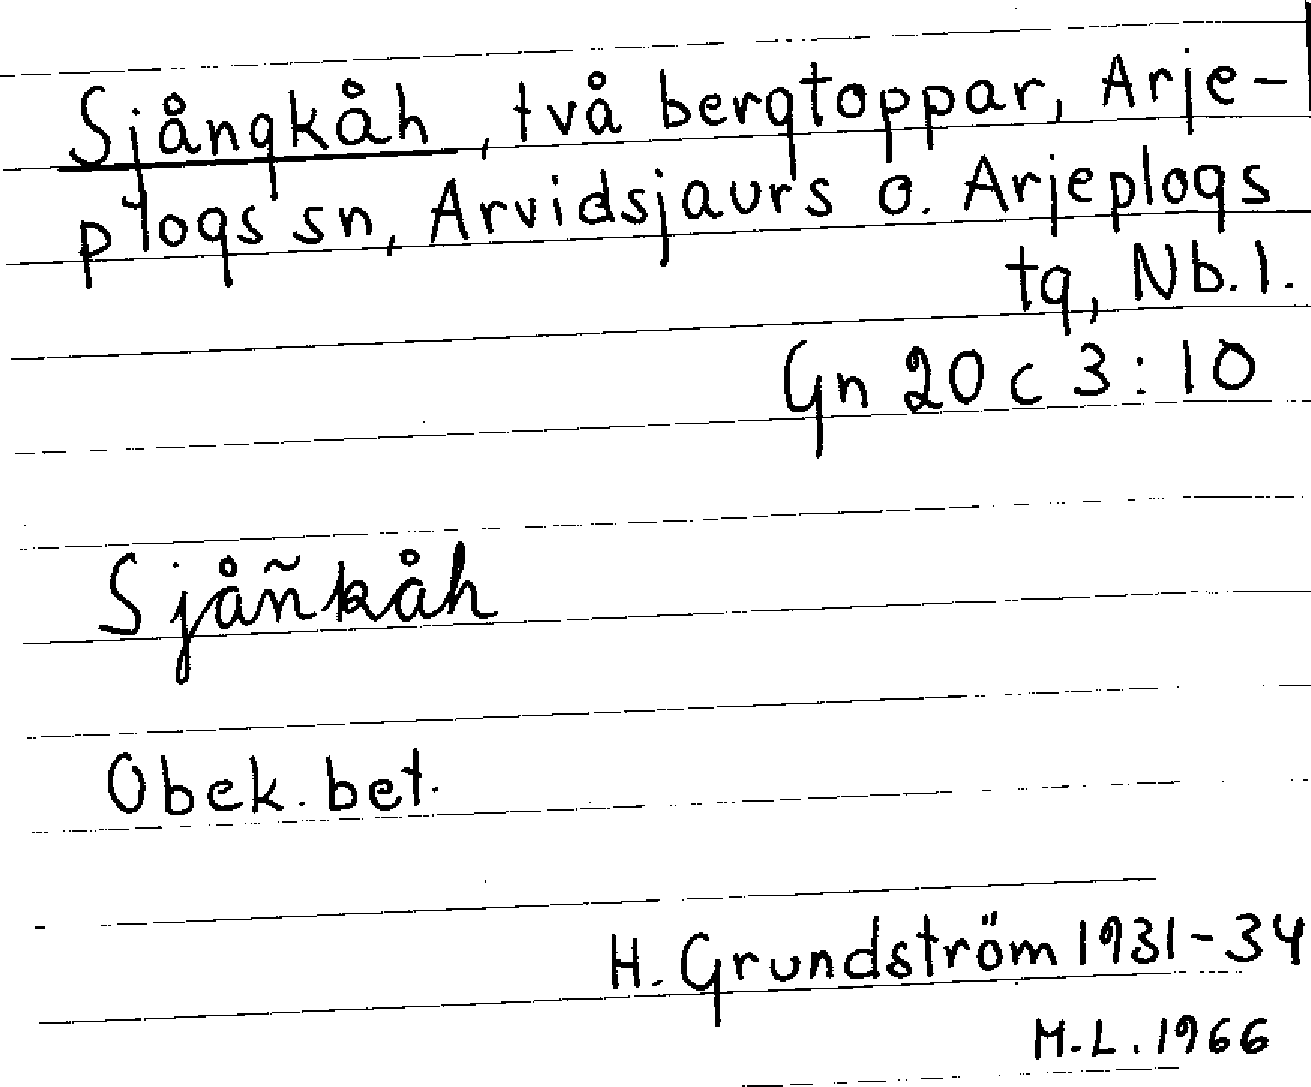 Sjångkåh, två bergtoppar, Arje-
plogs sn, Arvidsjaurs o. Arjeplogs
tg, Nb. l.
Gn 20 c 3:10
Sjåñkåh
Obek. bet.
H. Grundström 1931-34
M.L. 1966